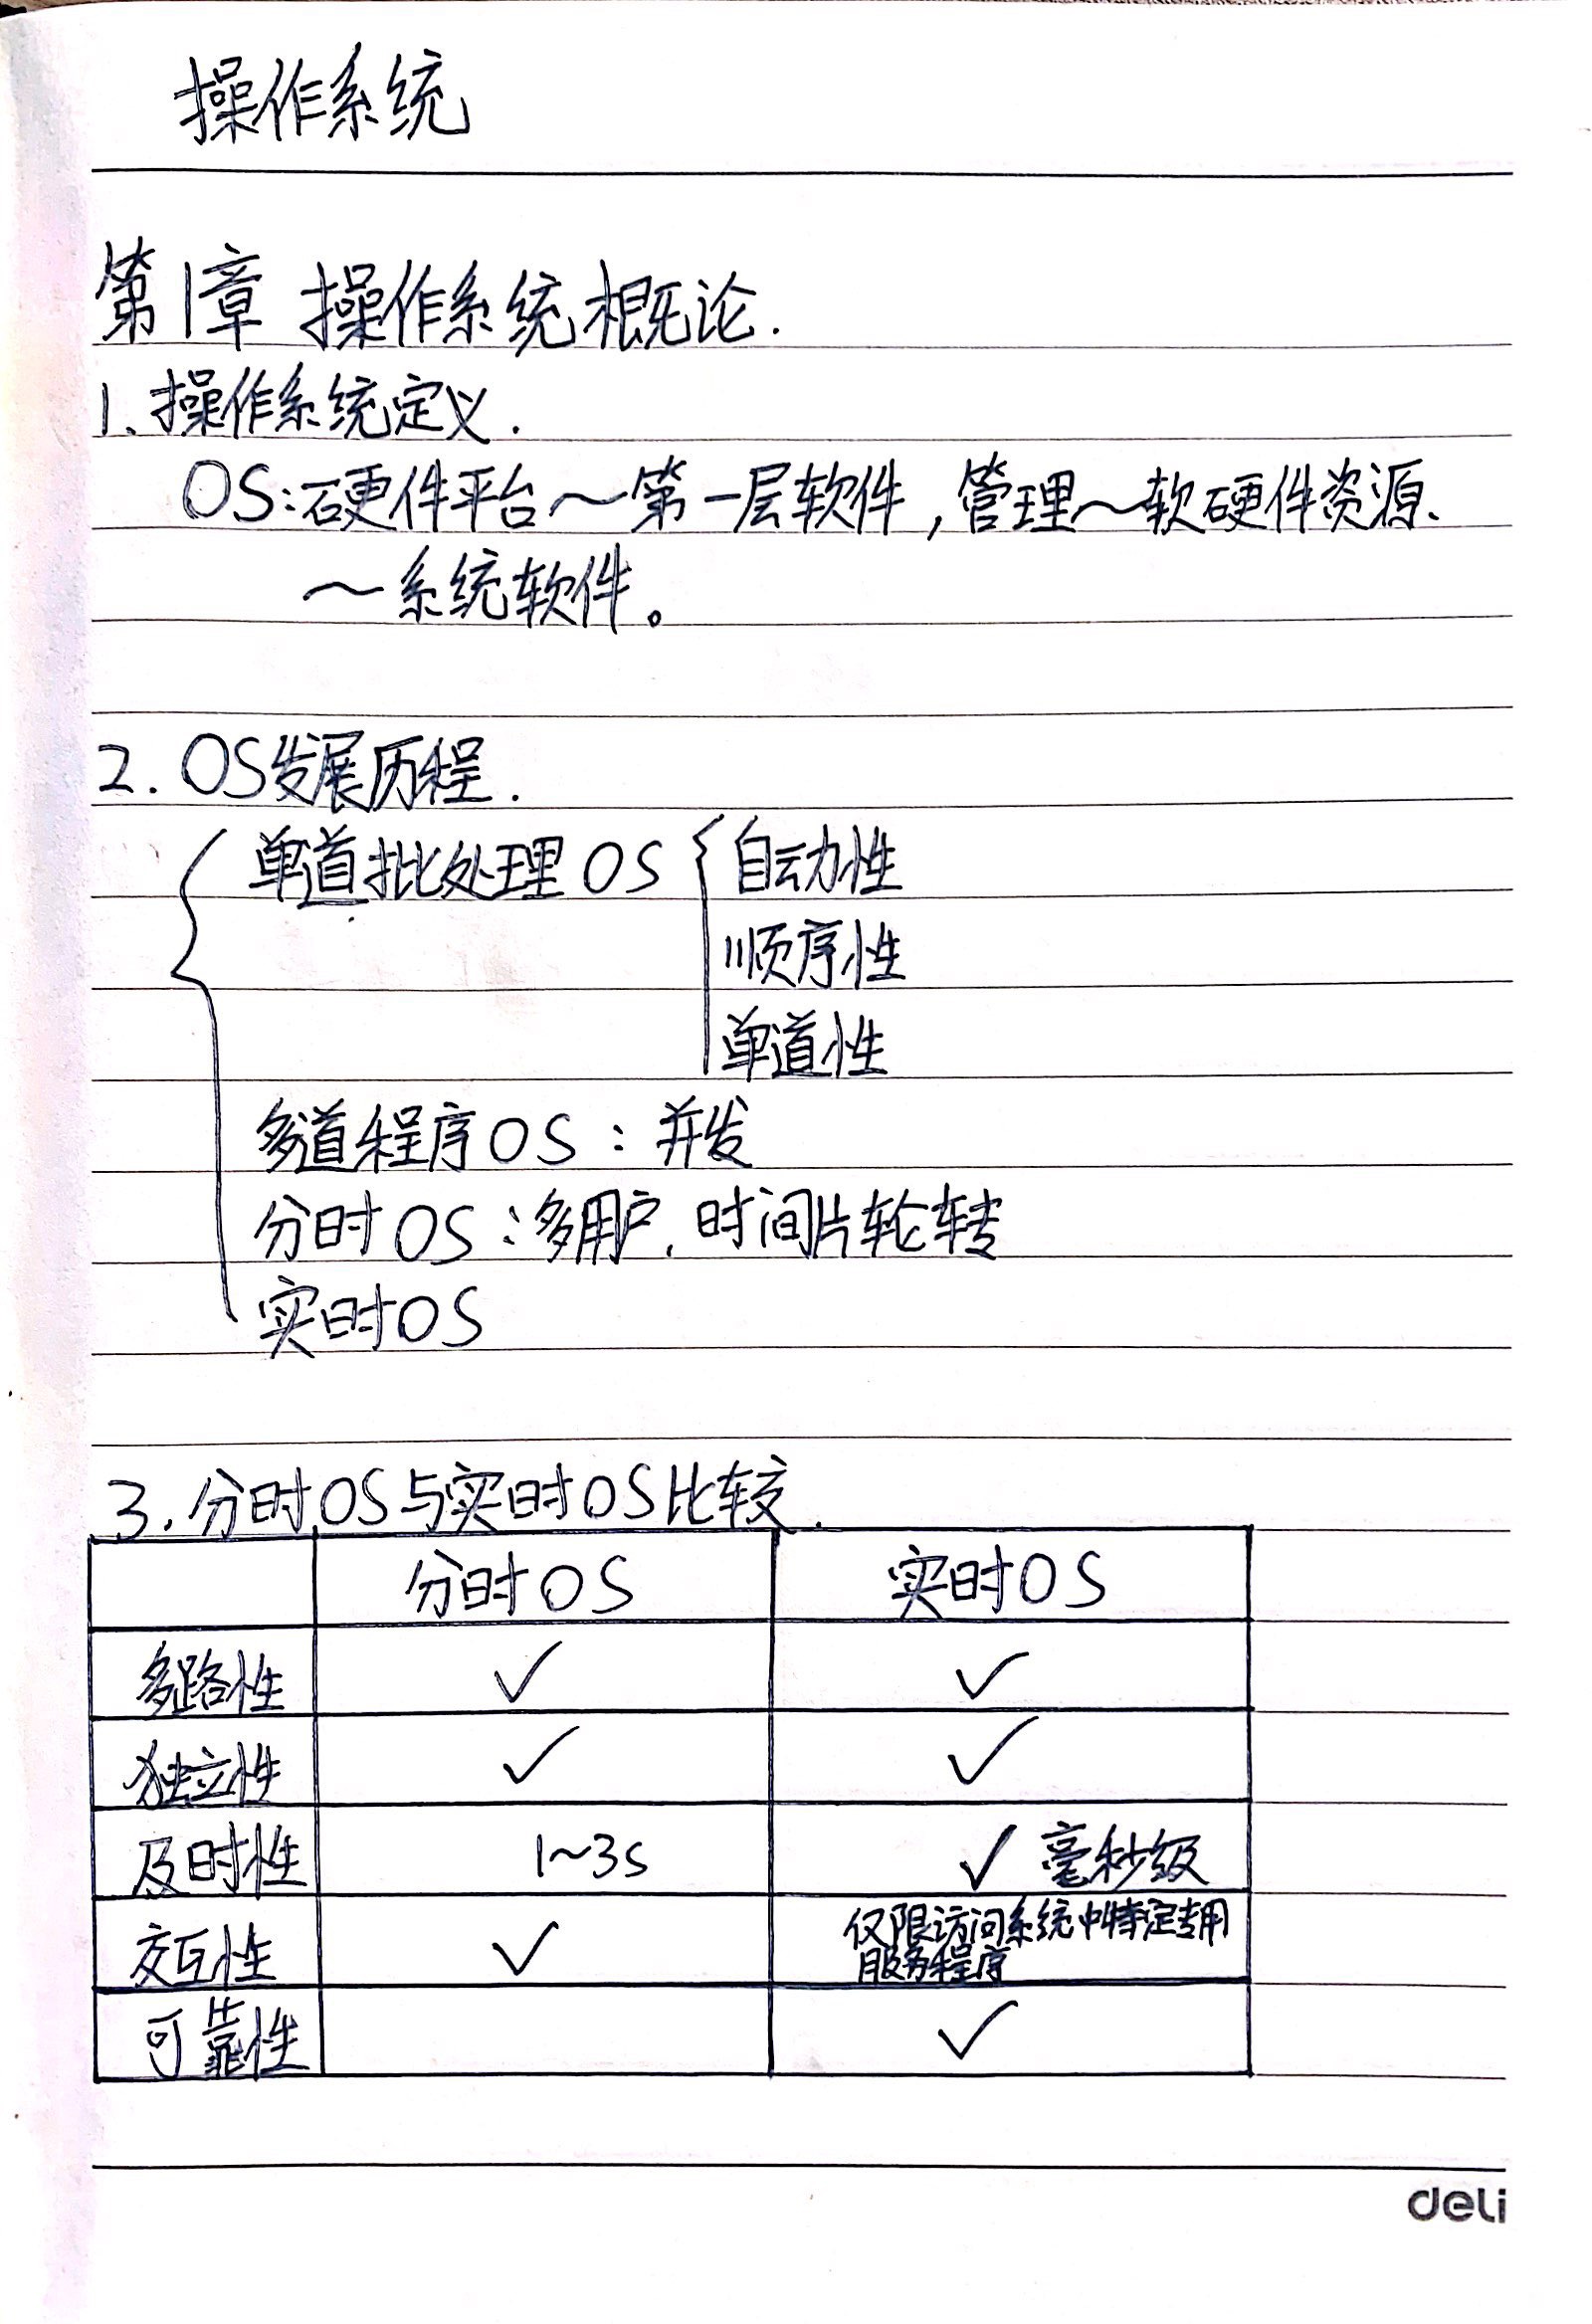 操作系统
第1章 操作系统概论.
1、操作系统定义.
OS:硬件平台～第一层软件,管理～软硬件资源、
～系统软件。
2. OS发展历程.
单道批处理OS { 自动性
顺序性
单道性
多道程序OS:并发
分时OS:多用户,时间片轮转
实时OS
3.分时OS与实时OS比较.
分时OS 实时OS
多路性 ✓ ✓
独立性 ✓ ✓
及时性 1~3s ✓ 毫秒级
交互性 ✓ 仅限访问系统中特定专用
服务程序
可靠性 ✓
deli